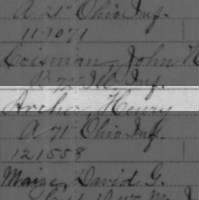 A 21" Ohio Inf.
117071
Coisman, John H
B 72" Ill Inf.
Archer Henry
A 71" Ohio Inf.
121558
Maize, David G.